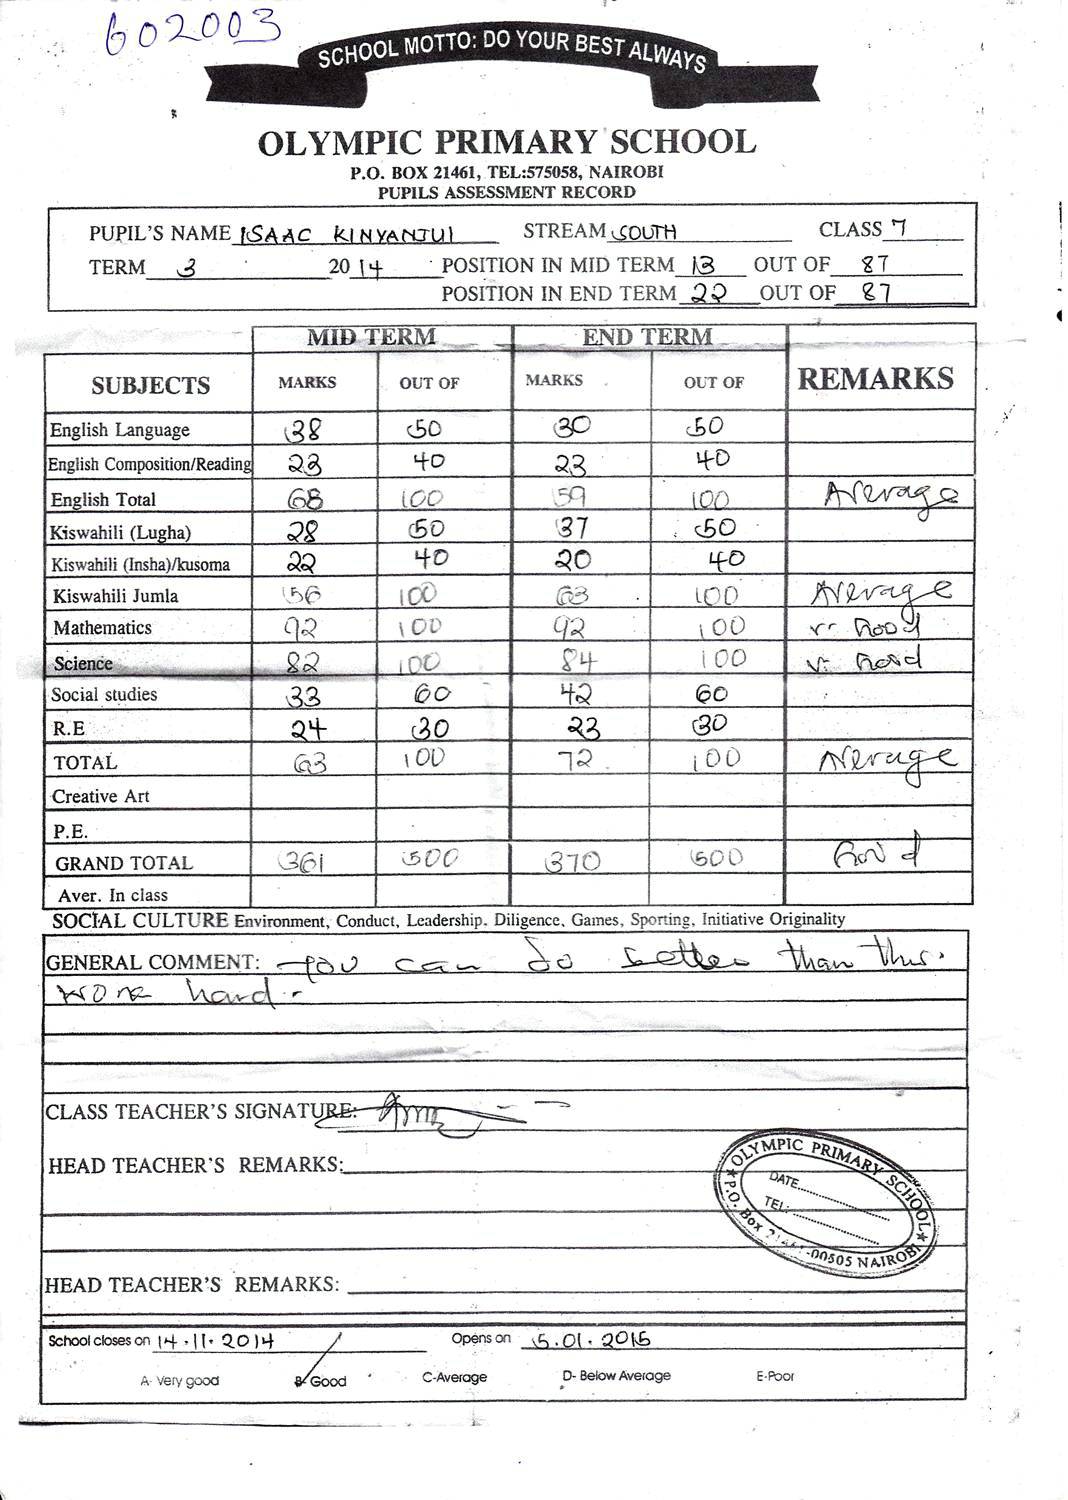 602003
SCHOOL MOTTO: DO YOUR BEST ALWAYS
OLYMPIC PRIMARY SCHOOL
P.O. BOX 21461, TEL:575058, NAIROBI
PUPILS ASSESSMENT RECORD
PUPIL'S NAME ISAAC KINYANJUI STREAM SOUTH CLASS 7
TERM 3 2014 POSITION IN MID TERM 13 OUT OF 87
POSITION IN END TERM 22 OUT OF 87
MID TERM END TERM
SUBJECTS MARKS OUT OF MARKS OUT OF REMARKS
English Language 38 50 30 50
English Composition/Reading 23 40 23 40
English Total 68 100 59 100 Average
Kiswahili (Lugha) 28 50 37 50
Kiswahili (Insha)/kusoma 22 40 20 40
Kiswahili Jumla 56 100 63 100 Average
Mathematics 92 100 92 100 v. Good
Science 82 100 84 100 v. Good
Social studies 33 60 42 60
R.E 24 30 23 30
TOTAL 63 100 72 100 Average
Creative Art
P.E.
GRAND TOTAL 361 500 370 500 Good
Aver. In class
SOCIAL CULTURE Environment, Conduct, Leadership. Diligence, Games, Sporting, Initiative Originality
GENERAL COMMENT: You can do better than this.
work hard.
CLASS TEACHER'S SIGNATURE:
HEAD TEACHER'S REMARKS:
OLYMPIC PRIMARY SCHOOL
DATE
TEL:
P.O. Box 21461-00505 NAIROBI
HEAD TEACHER'S REMARKS:
School closes on 14.11.2014 Opens on 5.01.2015
A- Very good B- Good C-Average D- Below Average E-Poor